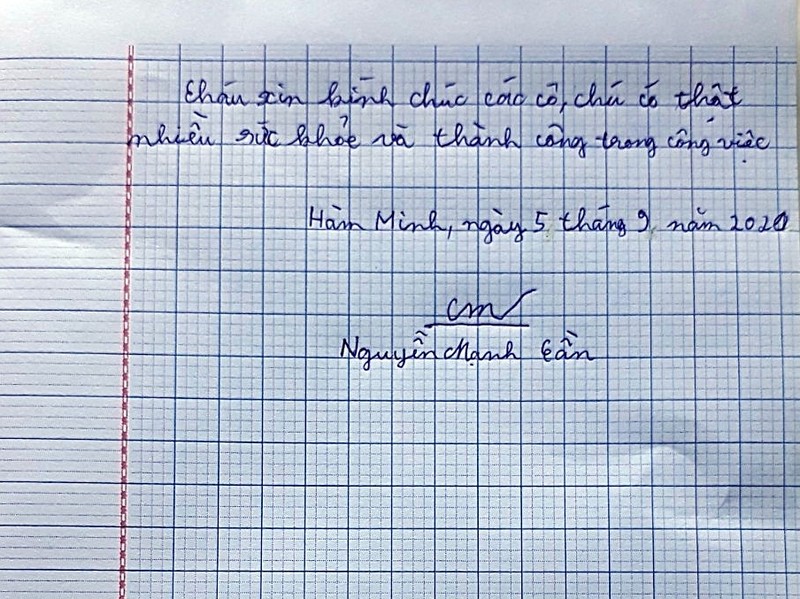 Cháu xin kính chúc các cô, chú có thật
nhiều sức khỏe và thành công trong công việc
Hàm Minh, ngày 5 tháng 9 năm 2020
Nguyễn Mạnh Cần